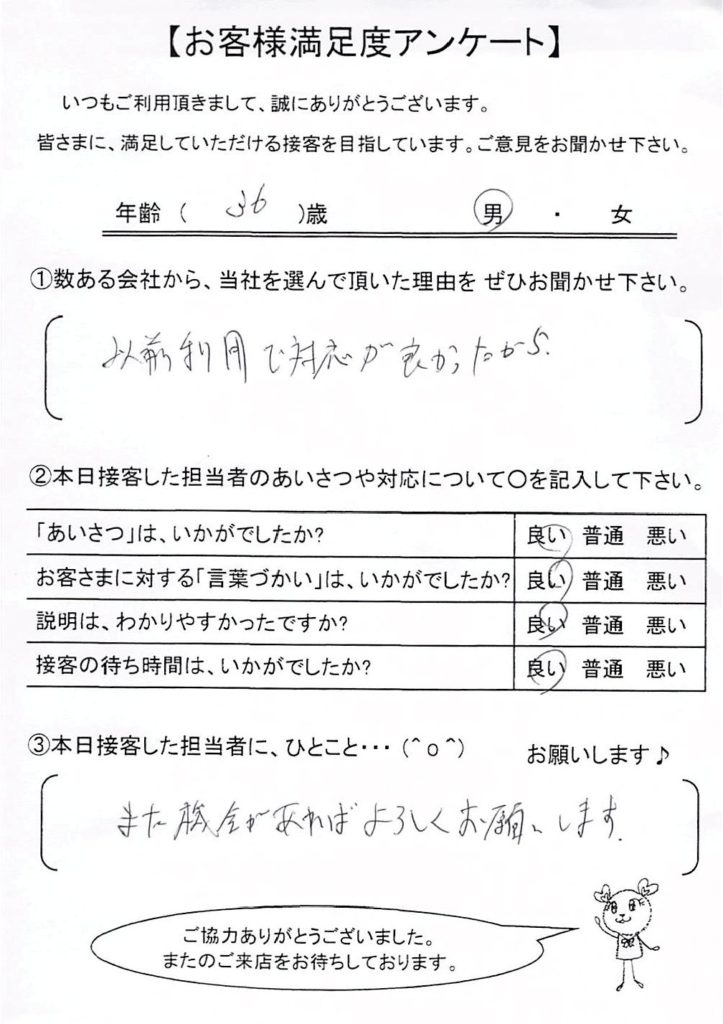 【お客様満足度アンケート】
いつもご利用頂きまして、誠にありがとうございます。
皆さまに、満足していただける接客を目指しています。ご意見をお聞かせ下さい。
年齢 ( 36 )歳 男 ・ 女
①数ある会社から、当社を選んで頂いた理由を ぜひお聞かせ下さい。
以前利用で対応が良かったから.
②本日接客した担当者のあいさつや対応について〇を記入して下さい。
「あいさつ」は、いかがでしたか? 良い 普通 悪い
お客さまに対する「言葉づかい」は、いかがでしたか? 良い 普通 悪い
説明は、わかりやすかったですか? 良い 普通 悪い
接客の待ち時間は、いかがでしたか? 良い 普通 悪い
③本日接客した担当者に、ひとこと・・・ (^o^) お願いします♪
また機会があればよろしくお願いします.
ご協力ありがとうございました。
またのご来店をお待ちしております。